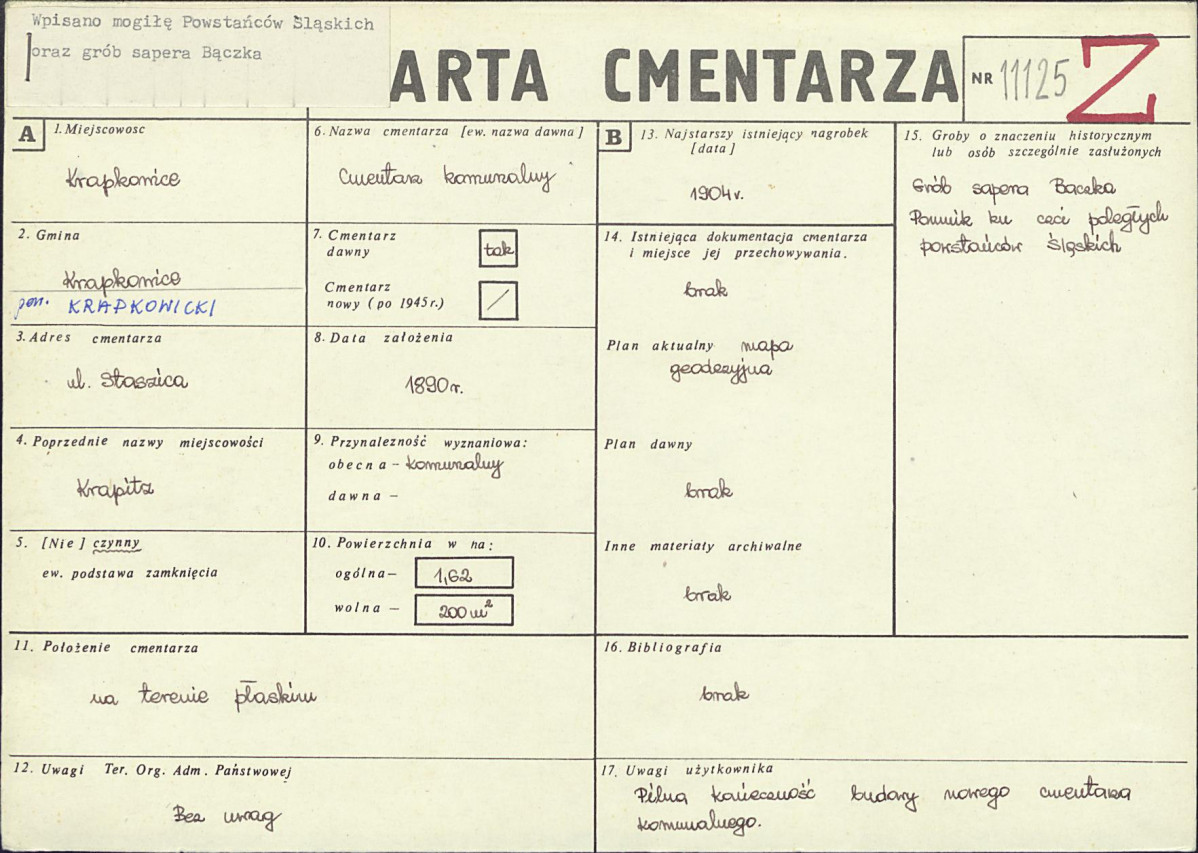 Wpisano mogiłę Powstańców Śląskich
oraz grób sapera Bączka
ARTA CMENTARZA
NR 11125 Z
A
1. Miejscowosc
Krapkowice
2. Gmina
Krapkowice
pow. KRAPKOWICKI
3. Adres cmentarza
ul. Staszica
4. Poprzednie nazwy miejscowości
Krapitz
5. [Nie] czynny
ew. podstawa zamknięcia
6. Nazwa cmentarza [ew. nazwa dawna]
Cmentarz komunalny
7. Cmentarz
dawny
tak
Cmentarz
nowy (po 1945r.)
/
8. Data założenia
1890 r.
9. Przynależność wyznaniowa:
obecna – komunalny
dawna –
10. Powierzchnia w ha:
ogólna – 1,62
wolna – 200 m²
11. Położenie cmentarza
na terenie płaskim
12. Uwagi Ter. Org. Adm. Państwowej
Bez uwag
B
13. Najstarszy istniejący nagrobek
[data]
1904 r.
14. Istniejąca dokumentacja cmentarza
i miejsce jej przechowywania.
brak
Plan aktualny mapa
geodezyjna
Plan dawny
brak
Inne materiały archiwalne
brak
15. Groby o znaczeniu historycznym
lub osób szczególnie zasłużonych
Grób sapera Bączka
Pomnik ku czci poległych
powstańców śląskich
16. Bibliografia
brak
17. Uwagi użytkownika
Pilna konieczność budowy nowego cmentarza
komunalnego.